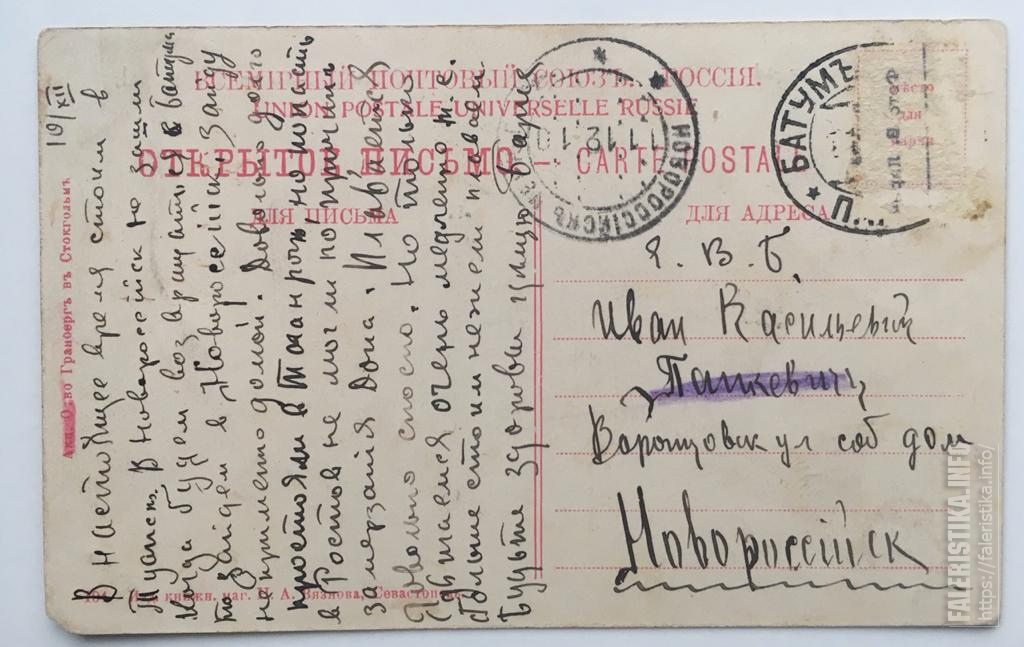 ВСЕМІРНЫЙ ПОЧТОВЫЙ СОЮЗЪ. РОССІЯ.
UNION POSTALE UNIVERSELLE RUSSIE
ОТКРЫТОЕ ПИСЬМО — CARTE POSTALE
ДЛЯ ПИСЬМА
ДЛЯ АДРЕСА
Мѣсто
для
марки
НОВОРОССІЙСКЪ
11.12.11
БАТУМЪ
П...
Акц. О-во Гранбергъ въ Стокгольмѣ
Изд. книжн. маг. П. А. Вязнова, Севастополь
10/XII
В настоящее время стоим в
Туапсе. В Новороссійск не зашли
когда будем возвращатся в Батума
то зайдем в Новороссійск. Запу
непременно домой. Довольно долго
простояли в Таганроге но попасть
в Ростов не могли по причини
замерзания Дона.
Довольно сносно. Но только
очень медленно т.е.
больше стоим нежели плаваем.
Будьте здоровы целую Варю
Я. В. Б.
Иван Васильевич
Пашкевич
Воронцовск ул соб дом
Новороссійск
FALERISTIKA.INFO
https://faleristika.info/